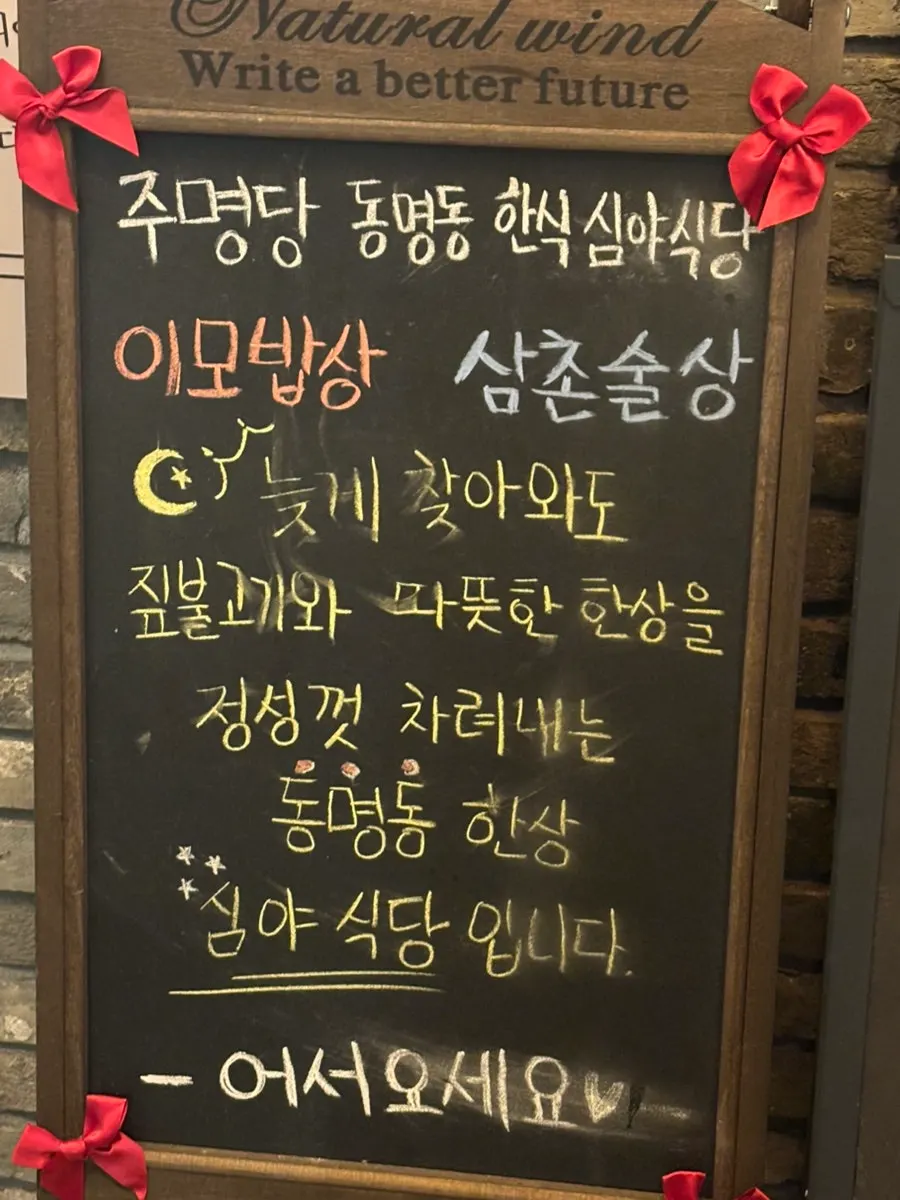 Natural wind
Write a better future
주명당 동명동 한식 심야식당
이모밥상 삼촌술상
늦게 찾아와도
짚불고기와 따뜻한 한상을
정성껏 차려내는
동명동 한상
심야 식당 입니다.
- 어서요세요♡